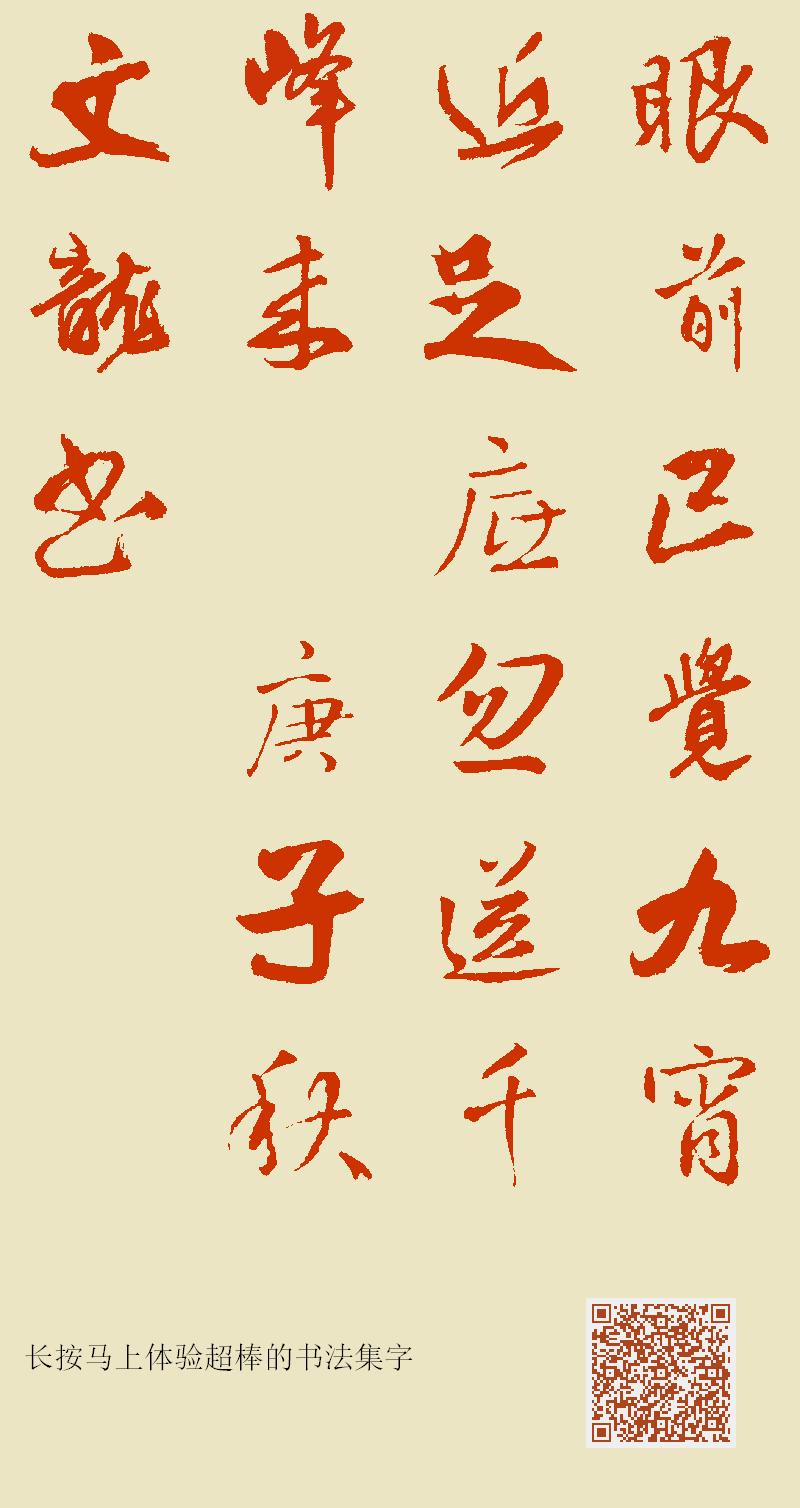 眼前已覺九霄
近足底忽送千
峰来 庚子秋
文龍书
长按马上体验超棒的书法集字